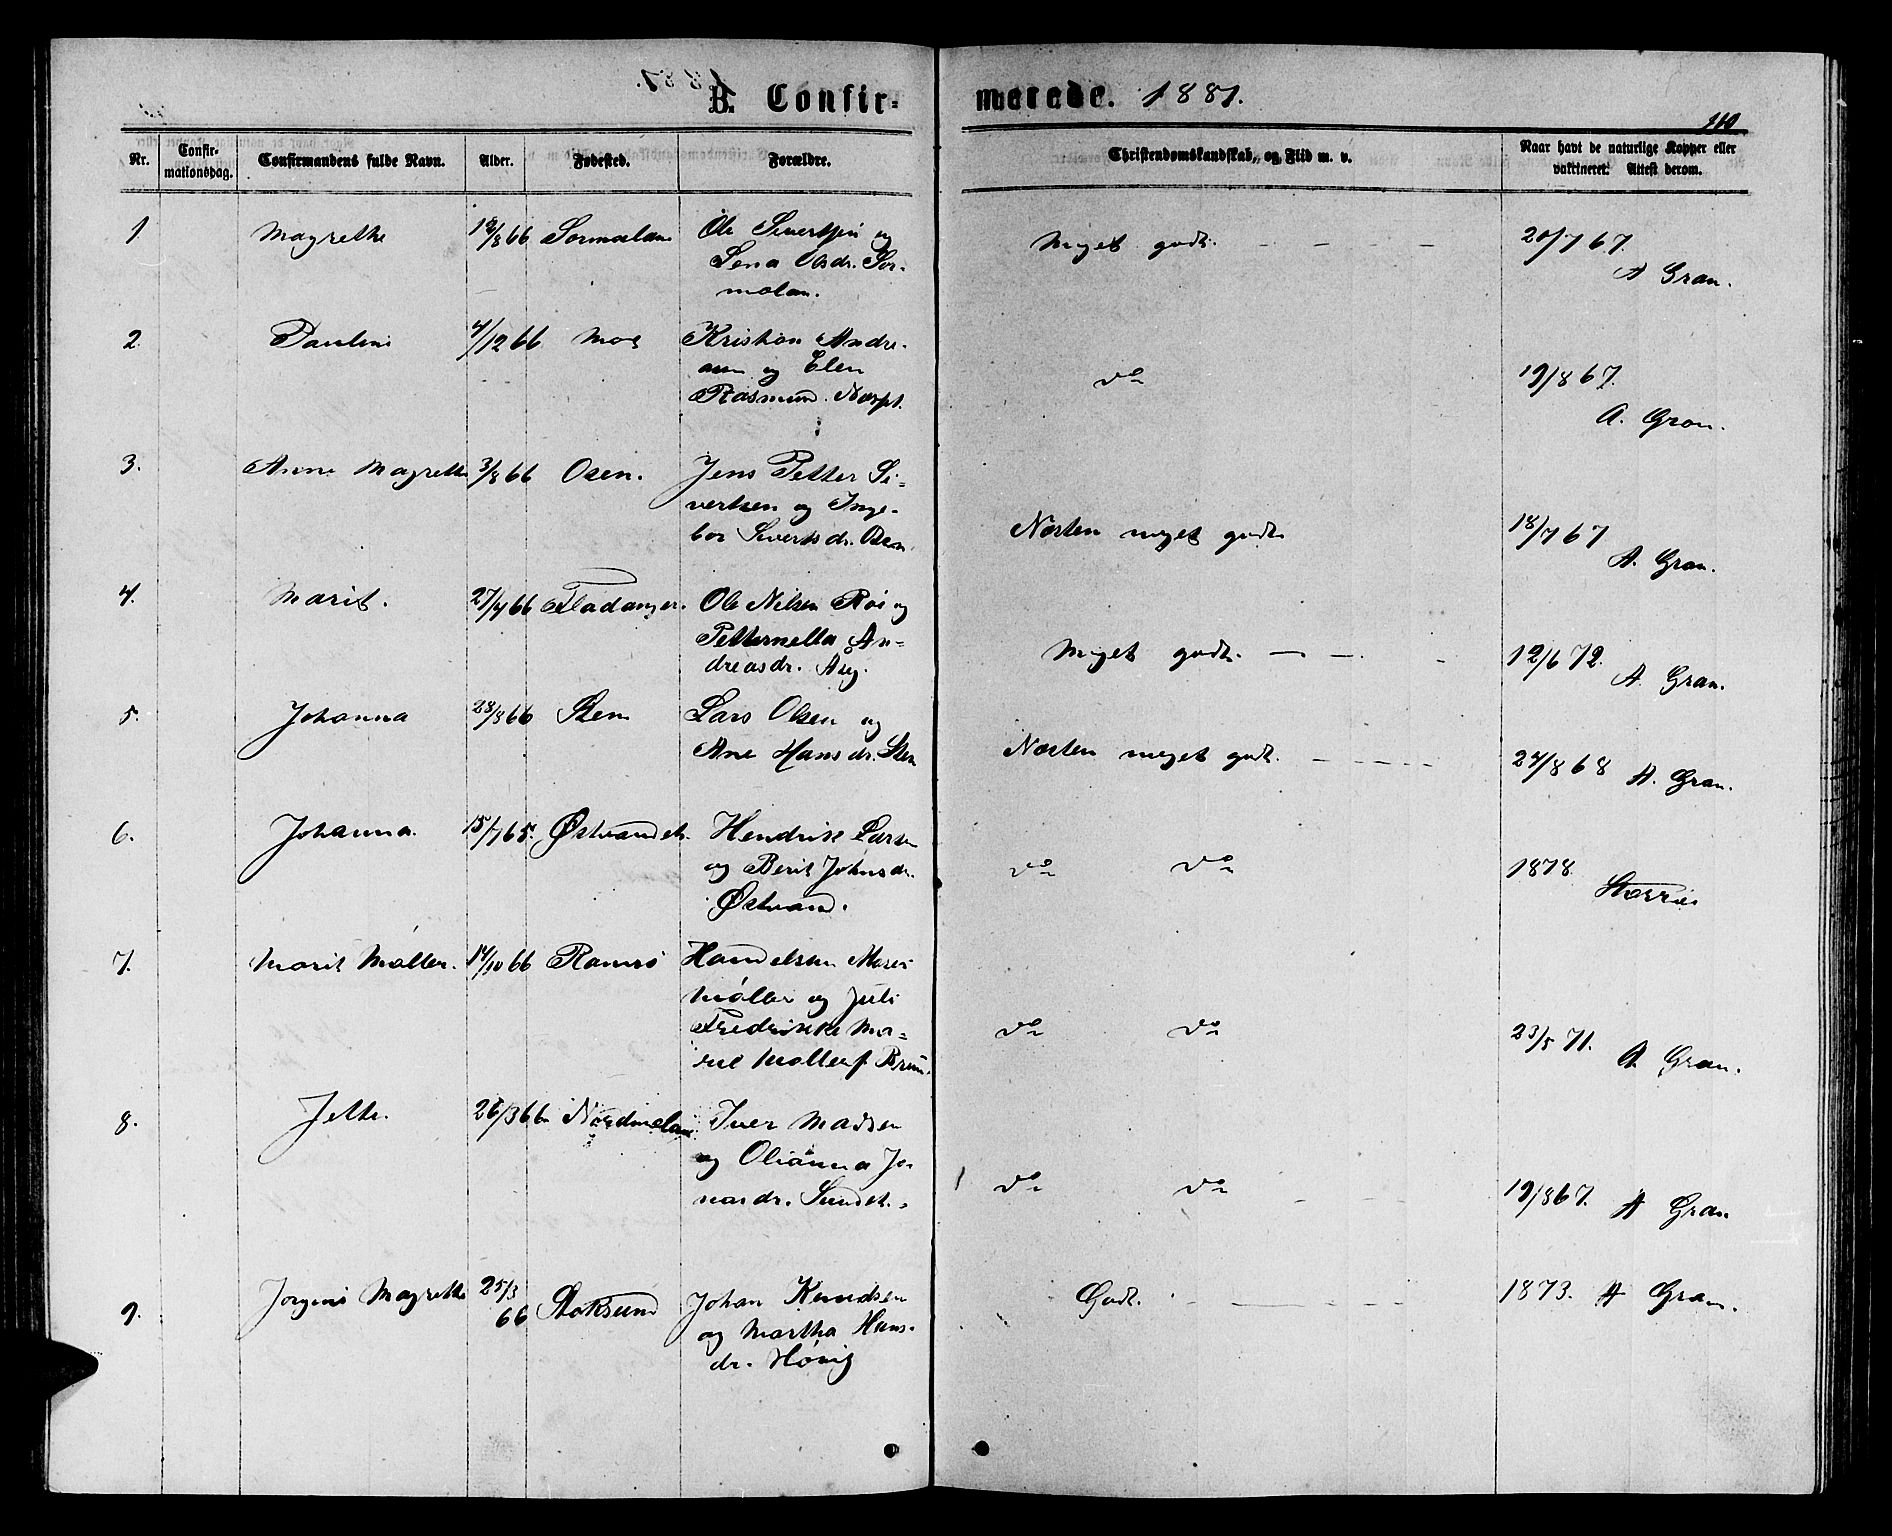 B. Confir-
merede. 1881.
110
Nr.
Confir-
mationsdag.
Confirmandens fulde Navn.
Alder.
Fødested.
Forældre.
Christendomskundskab, og Flid m. v.
Naar havt de naturlige Kopper eller
vakcineret. Attest derom.
1 Magrethe 18/8 66 Sørmælan Ole Sivertsen og
Lena Olsdr. Sør-
mælan.
Meget godt. 20/7 67.
A Gran.
2. Pauline 4/12 66 Mos Kristian Andre-
asen og Elen
Rasmusd.
do 19/8 67.
A. Gran.
3. Anne Magrethe 3/8 66 Osen. Jens Petter Si-
vertsen og Inge-
bor Sivertsdr. Osen.
Næsten meget godt 18/7 67
A. Gran.
4. Marit. 27/4 66 Fladanger. Ole Nilsen Røs og
Petternella An-
dreasdr.
Meget godt. 12/6 72.
A. Gran.
5. Johanna 28/8 66 Sten Lars Olsen og
Ane Hansdr. Sten
Næsten meget godt. 24/8 68 A. Gran.
6. Johanna. 15/7 65. Østvandet. Hendrik Larsen
og Berit Johnsdr.
Østvand.
do do 1878.
7. Marit Møller. 14/10 66 Ramsø Handelsm.
Møller og Juli
Fredrikke Ma-
rie Møller f. Brun.
do do 23/5 71.
A Gran.
8. Jette. 26/3 66 Nordmelan Iver Madsen
og Olianna Jo-
nasdr. Sundet.
do do 19/8 67. A Gran
9. Jørgine Magrethe 25/3
66 Stoksund Johan Knudsen
og Martha Hans-
dr. Høvig
Godt. 1873. A Gran.